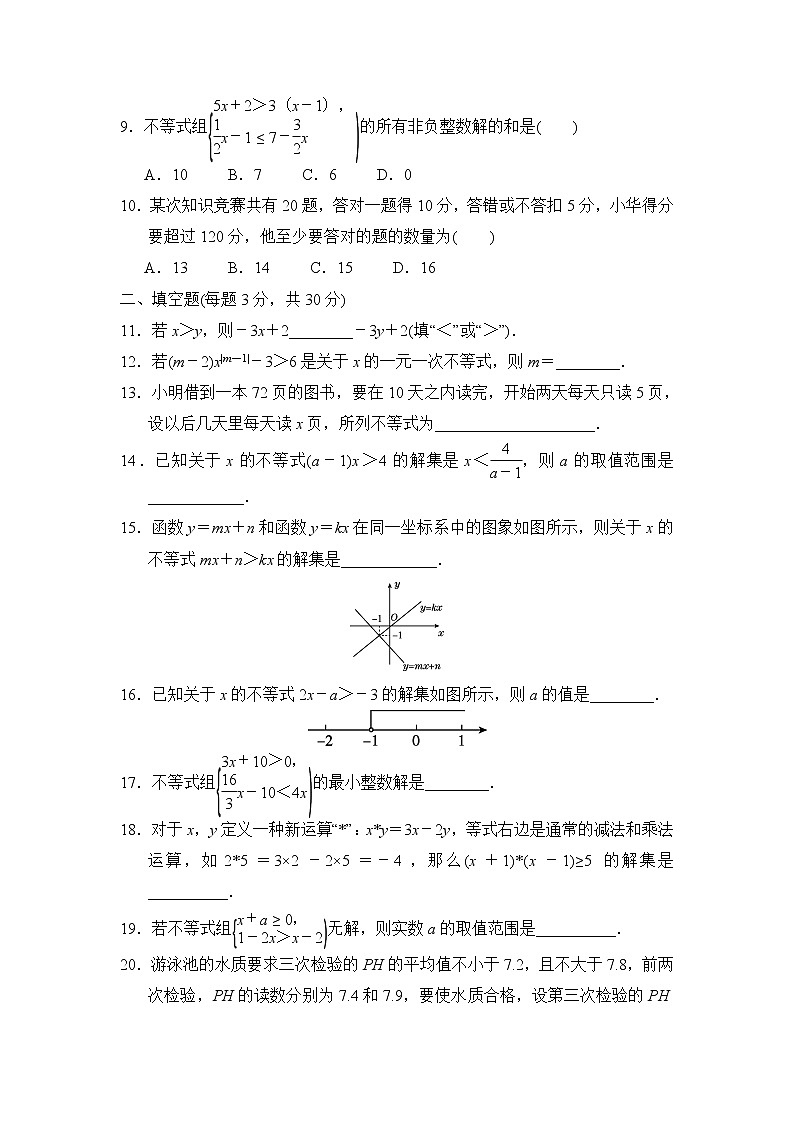 9．不等式组{5x＋2＞3（x－1），
1/2x－1≤7－3/2x)的所有非负整数解的和是(　　)
A．10　　B．7　　C．6　　D．0
10．某次知识竞赛共有20题，答对一题得10分，答错或不答扣5分，小华得分
要超过120分，他至少要答对的题的数量为(　　)
A．13　　B．14　　C．15　　D．16
二、填空题(每题3分，共30分)
11．若x＞y，则－3x＋2________－3y＋2(填“＜”或“＞”)．
12．若(m－2)x|m－1|－3＞6是关于x的一元一次不等式，则m＝________．
13．小明借到一本72页的图书，要在10天之内读完，开始两天每天只读5页，
设以后几天里每天读x页，所列不等式为____________________．
14．已知关于x的不等式(a－1)x＞4的解集是x＜4/(a－1)，则a的取值范围是
____________．
15．函数y＝mx＋n和函数y＝kx在同一坐标系中的图象如图所示，则关于x的
不等式mx＋n＞kx的解集是____________．
y
y=kx
−1 O
−1 x
y=mx+n
16．已知关于x的不等式2x－a＞－3的解集如图所示，则a的值是________．
−2 −1 0 1
17．不等式组{3x＋10＞0，
16/3x－10＜4x)的最小整数解是________．
18．对于x，y定义一种新运算“*”：x*y＝3x－2y，等式右边是通常的减法和乘法
运算，如2*5＝3×2－2×5＝－4，那么(x＋1)*(x－1)≥5的解集是
__________．
19．若不等式组{x＋a≥0，
1－2x＞x－2)无解，则实数a的取值范围是__________．
20．游泳池的水质要求三次检验的PH的平均值不小于7.2，且不大于7.8，前两
次检验，PH的读数分别为7.4和7.9，要使水质合格，设第三次检验的PH